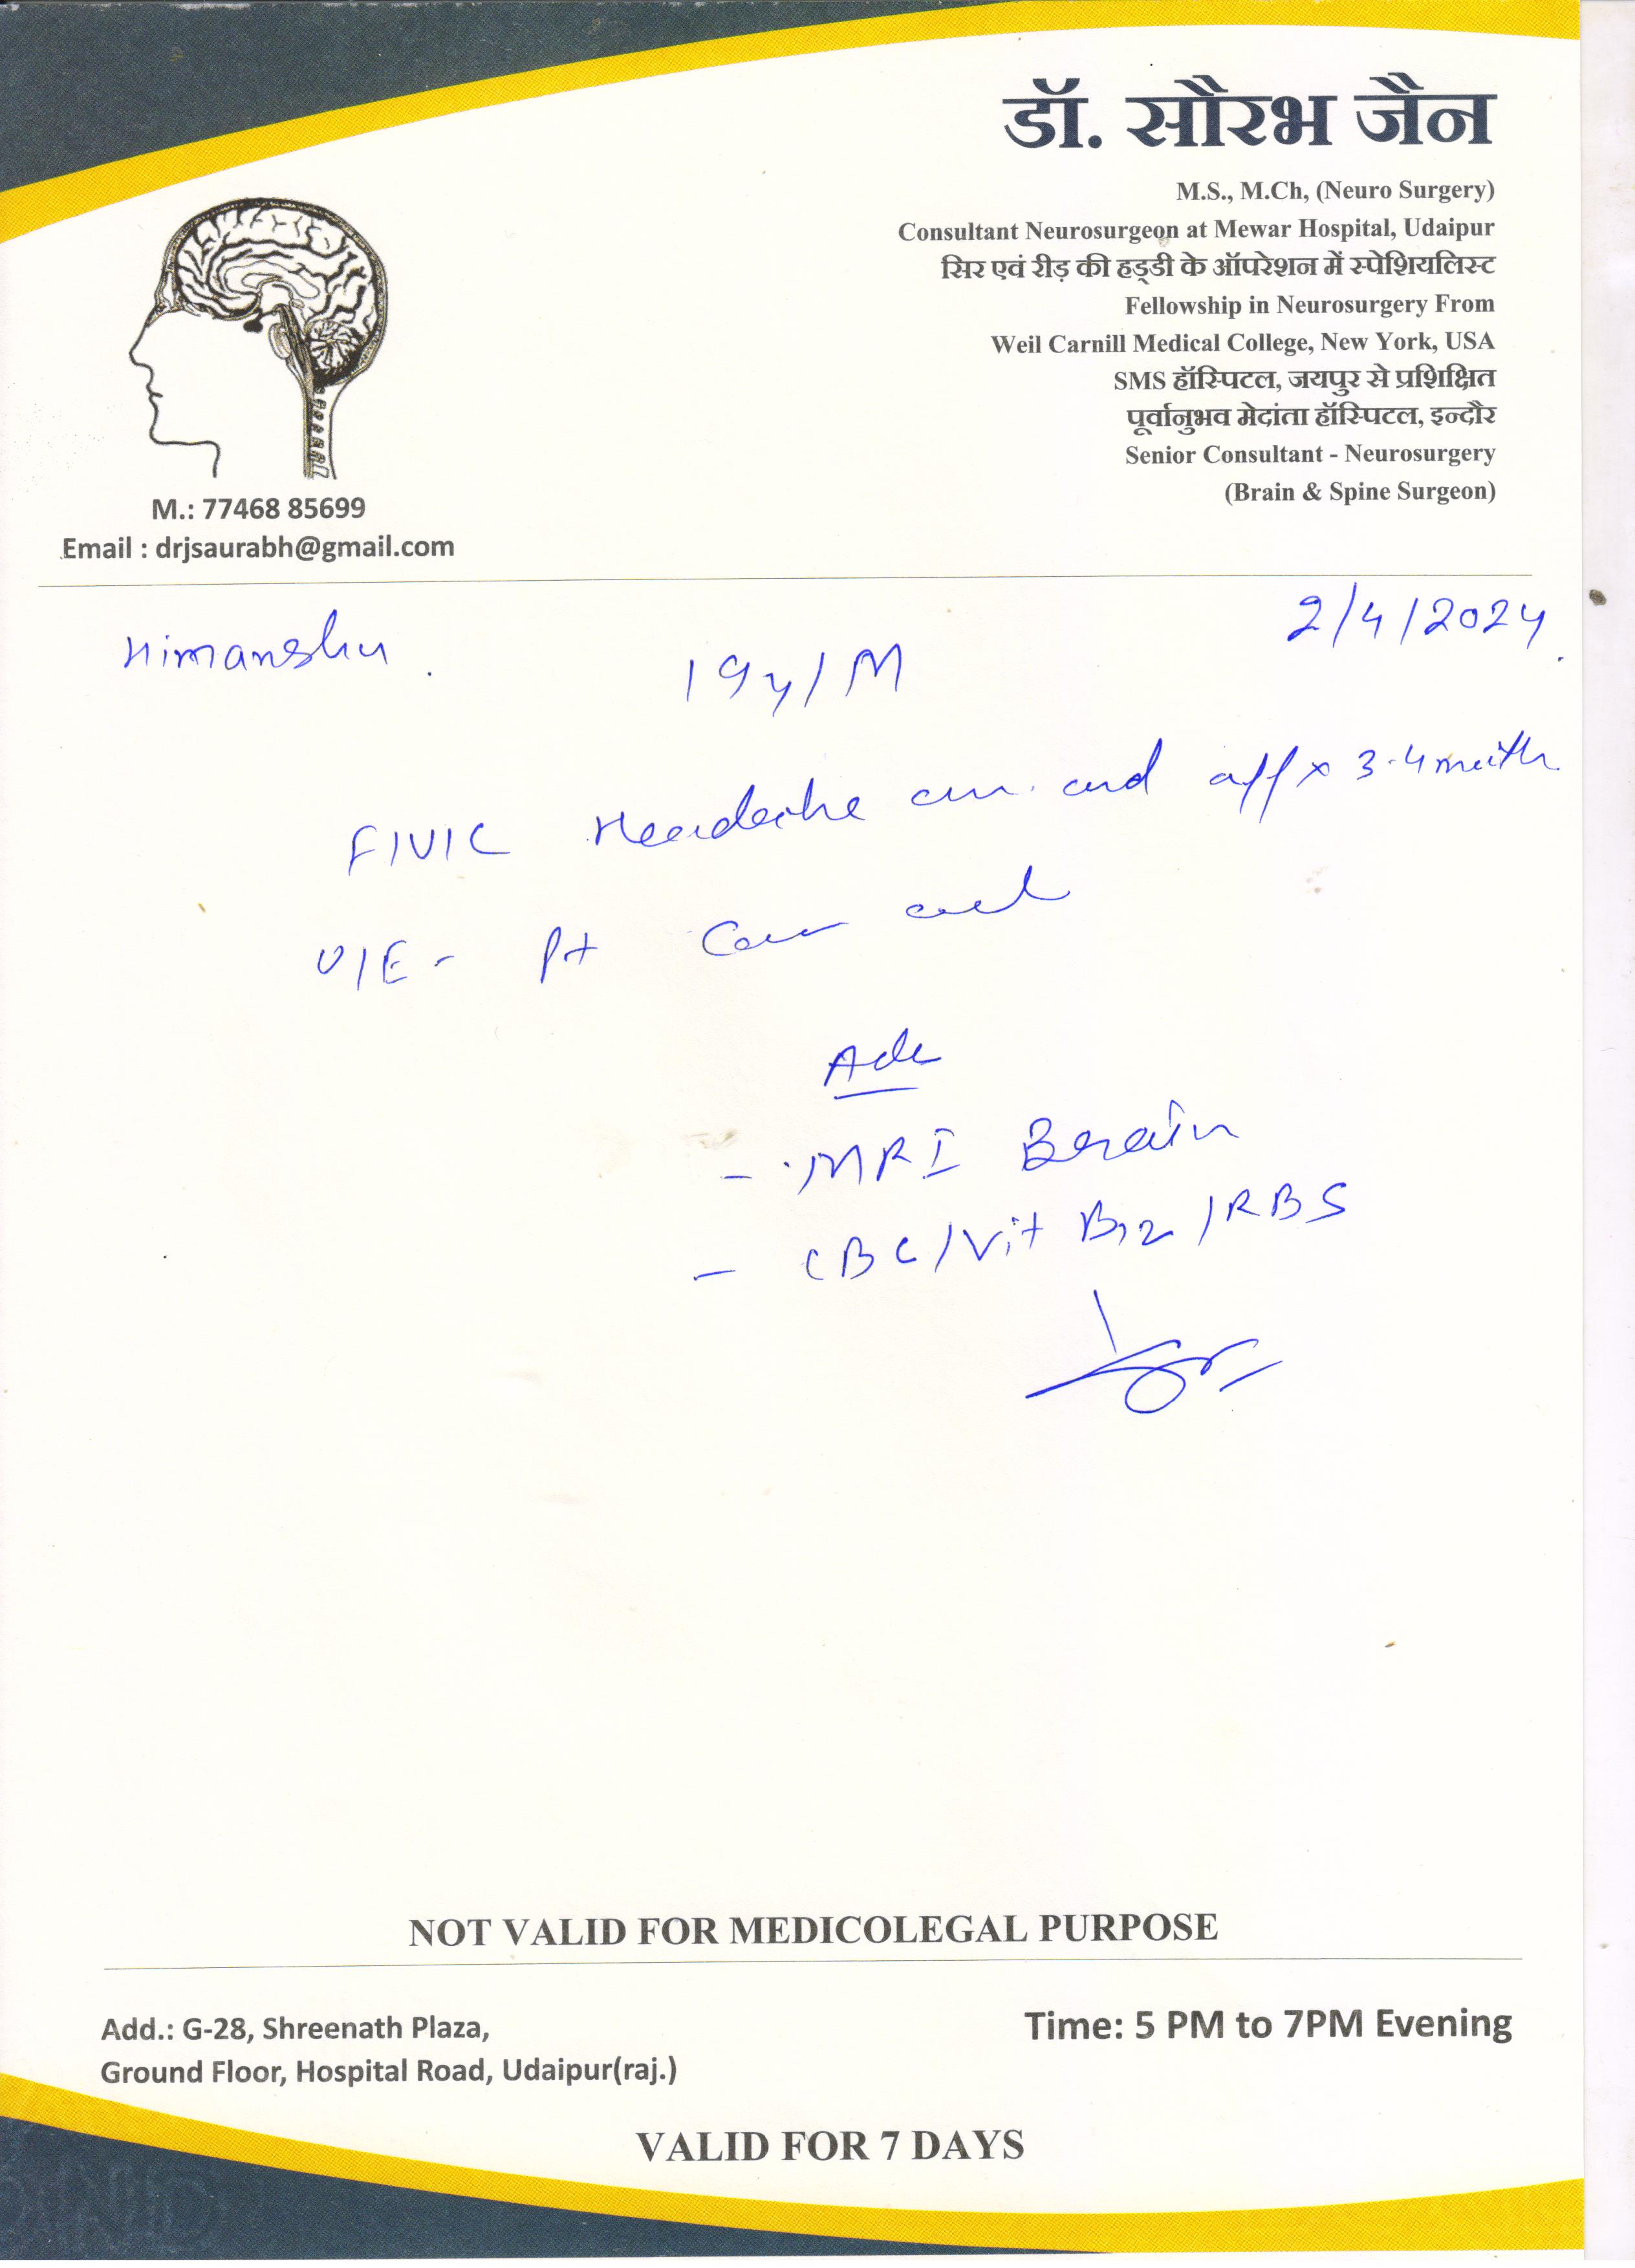 डॉ. सौरभ जैन
M.S., M.Ch, (Neuro Surgery)
Consultant Neurosurgeon at Mewar Hospital, Udaipur
सिर एवं रीड़ की हड्डी के ऑपरेशन में स्पेशियलिस्ट
Fellowship in Neurosurgery From
Weil Carnill Medical College, New York, USA
SMS हॉस्पिटल, जयपुर से प्रशिक्षित
पूर्वानुभव मेदांता हॉस्पिटल, इन्दौर
Senior Consultant - Neurosurgery
(Brain & Spine Surgeon)
M.: 77468 85699
Email : drjsaurabh@gmail.com
2/4/2024
Himanshu
19y/M
Headache on and off x 3-4 month
O/E - Pt
Adv
- MRI Brain
- CBC/Vit B12/RBS
NOT VALID FOR MEDICOLEGAL PURPOSE
Add.: G-28, Shreenath Plaza,
Ground Floor, Hospital Road, Udaipur(raj.)
Time: 5 PM to 7PM Evening
VALID FOR 7 DAYS